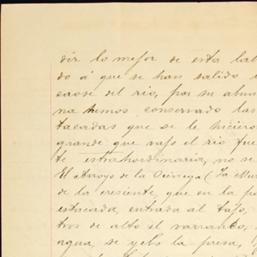 dir lo mejor de esta lab
do á que se han salido
cause del rio, por su abun
na hemos conservado las
tacadas que se le hiciero
grande que vajo el rio fue
te estrahordinaria, no se
El arroyo de la
de la cresiente, que en la po
estacada, entrada al tajo,
tros de alto el varranco,
agua, se yebo la presa,